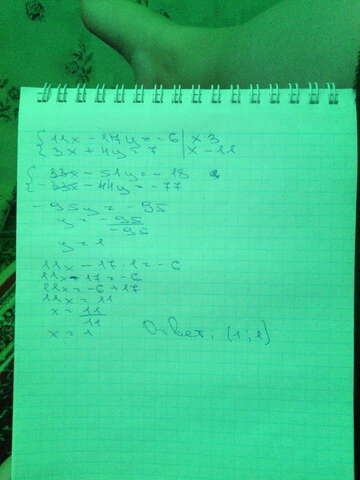 11x - 17y = -6 | x 3
3x + 4y = 7 | x -11
33x - 51y = -18
-33x - 44y = -77
-95y = -95
y = -95/-95
y = 1
11x - 17 · 1 = -6
11x - 17 = -6
11x = -6 + 17
11x = 11
x = 11/11
x = 1
Ответ: (1; 1)